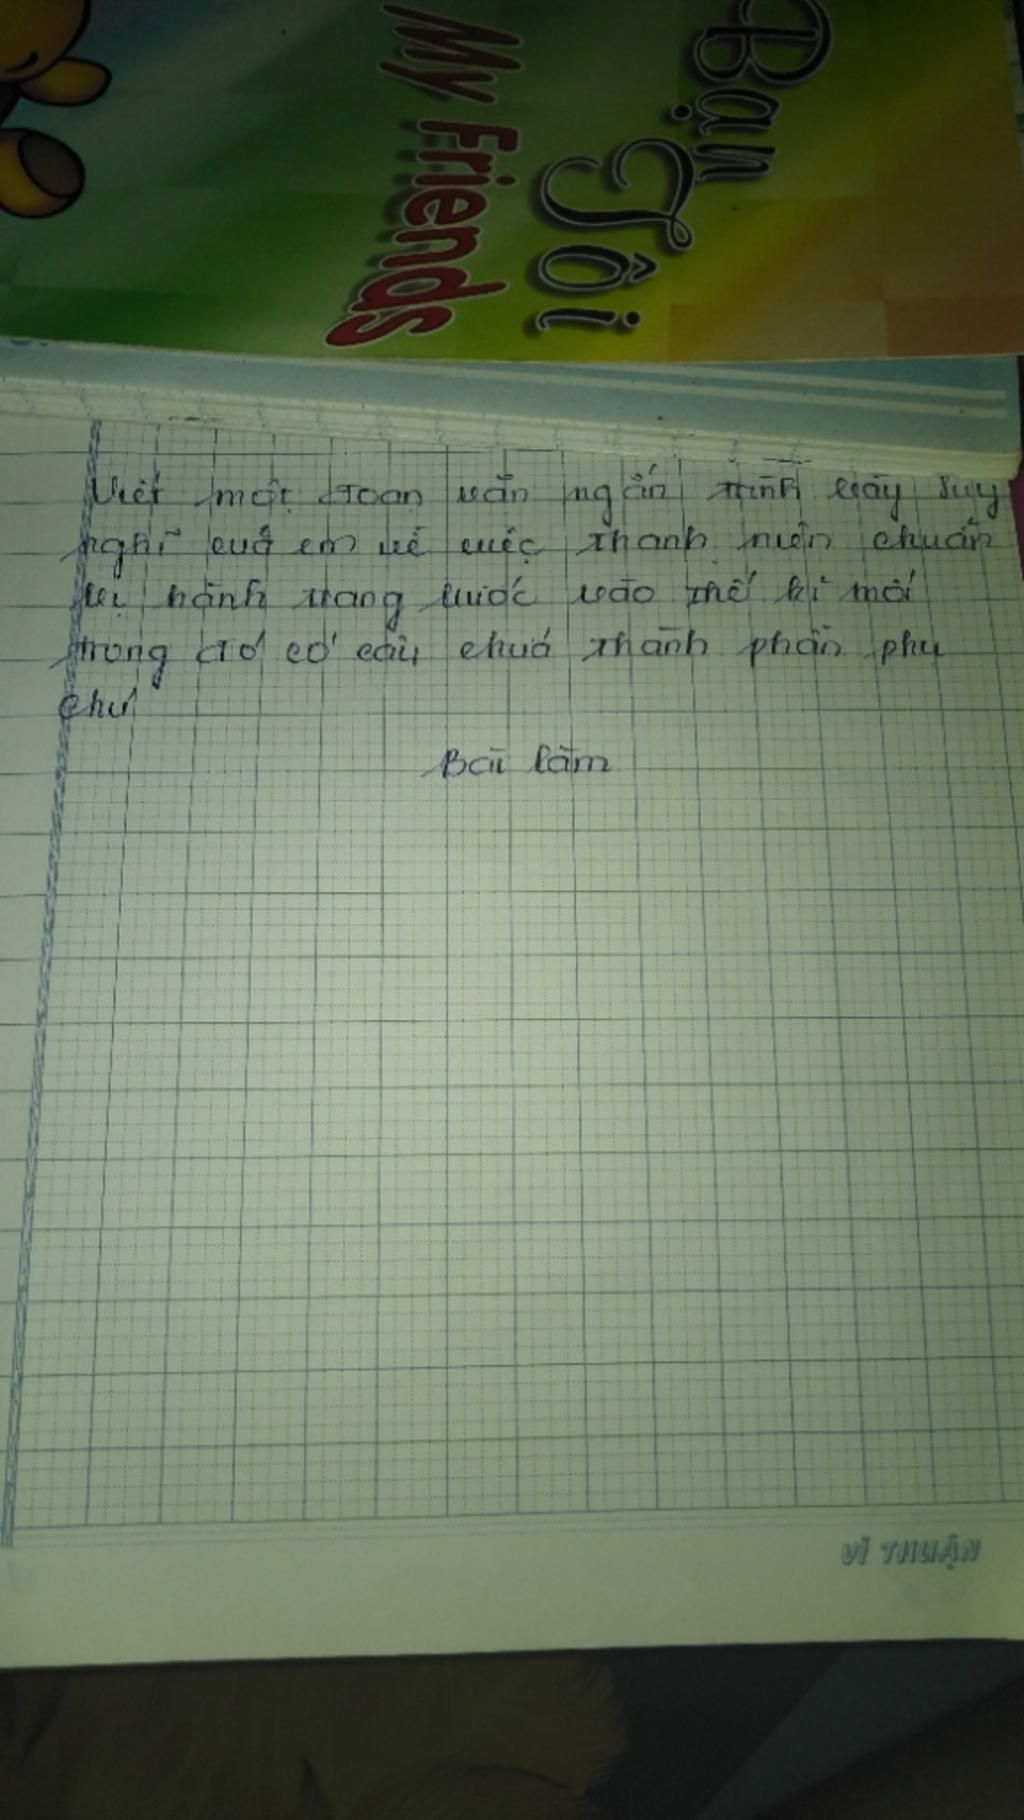 Bạn Tôi
My Friends
Viết một đoạn văn ngắn trình bày suy
nghĩ của em về việc thanh niên chuẩn
bị hành trang bước vào thế kỉ mới
trong đó có câu chứa thành phần phụ
chú
Bài làm
VĨ THUẬN